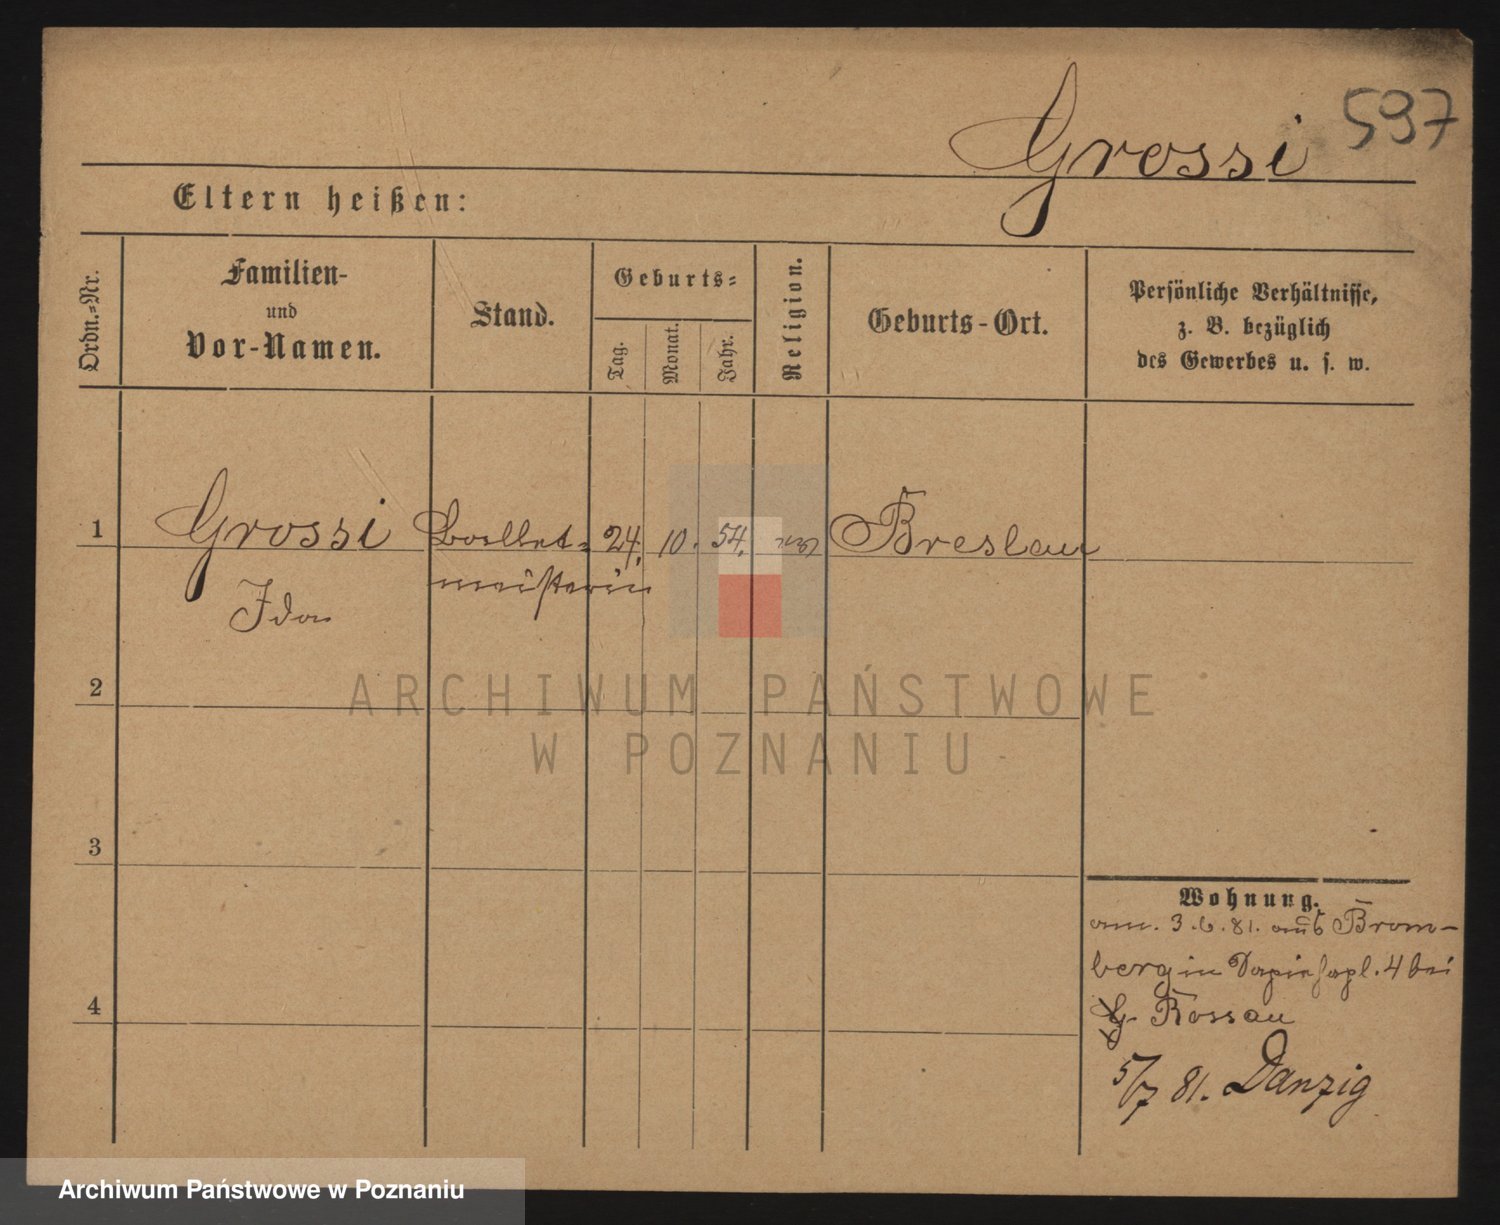 Grossi 597
Eltern heißen:
Ordn.=Nr.
Familien-
und
Vor-Namen.
Stand.
Geburts=
Tag.
Monat.
Jahr.
Religion.
Geburts-Ort.
Persönliche Verhältnisse,
z. B. bezüglich
des Gewerbes u. s. w.
1 Grossi Ballet= 24. 10. 54. Breslau
meisterin
Ida
2
3
4
Wohnung.
am. 3.6.81. aus Brom-
berg in 4 bei
Rossau
5/7 81. Danzig
ARCHIWUM PAŃSTWOWE
W POZNANIU
Archiwum Państwowe w Poznaniu